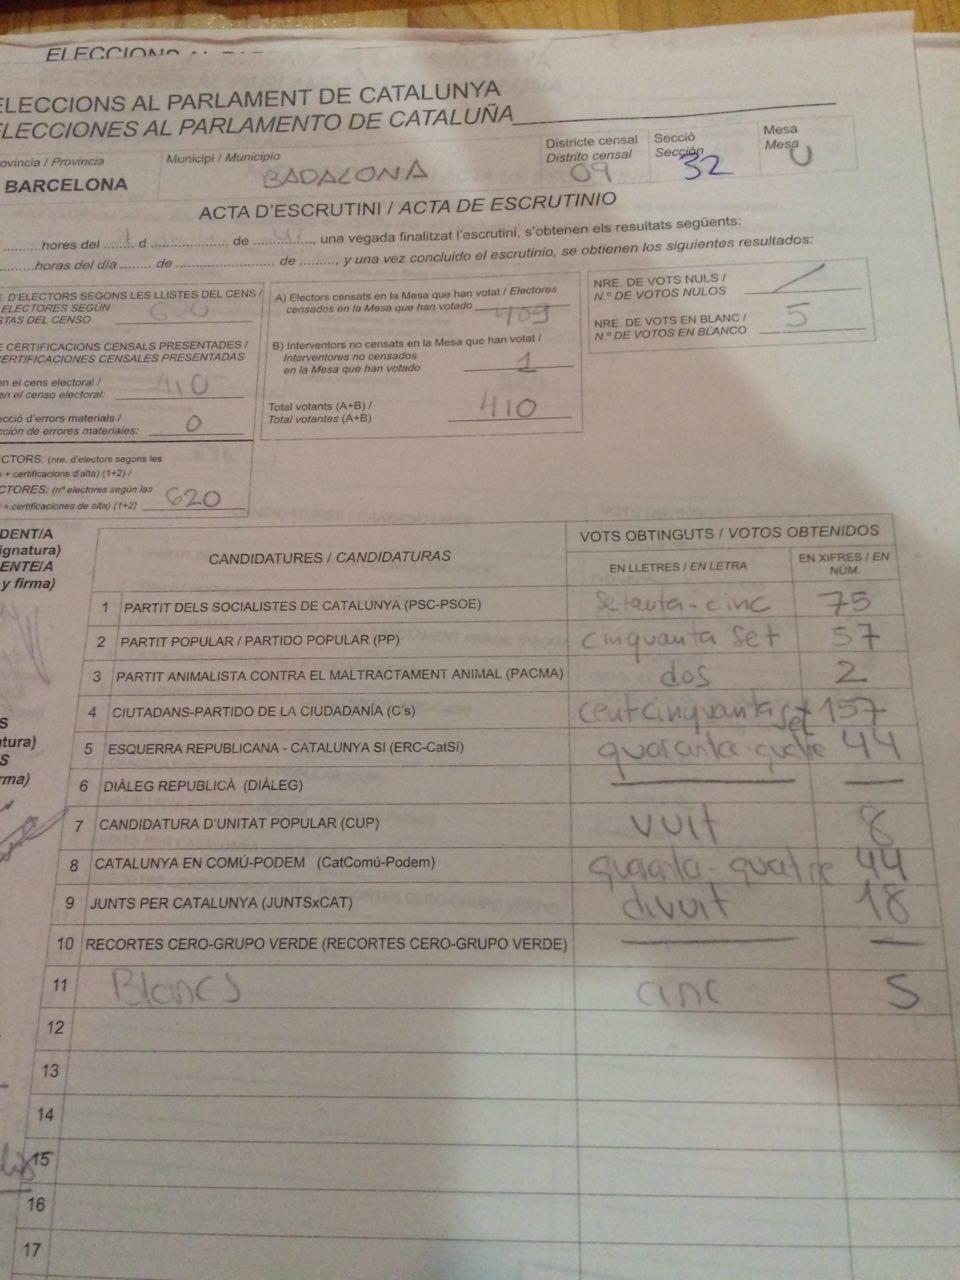 ELECCIONS AL PAR
ELECCIONS AL PARLAMENT DE CATALUNYA
ELECCIONES AL PARLAMENTO DE CATALUÑA
ovincia / Provincia
BARCELONA
Municipi / Municipio
BADALONA
Districte censal
Distrito censal
09
Secció
Sección
32
Mesa
Mesa
U
ACTA D'ESCRUTINI / ACTA DE ESCRUTINIO
hores del d de , una vegada finalitzat l'escrutini, s'obtenen els resultats següents:
horas del día de de , y una vez concluido el escrutinio, se obtienen los siguientes resultados:
. D'ELECTORS SEGONS LES LLISTES DEL CENS /
ELECTORES SEGÚN
STAS DEL CENSO
E CERTIFICACIONS CENSALS PRESENTADES /
CERTIFICACIONES CENSALES PRESENTADAS
en el cens electoral /
en el censo electoral: 410
ecció d'errors materials /
cción de errores materiales: 0
CTORS: (nre. d'electors segons les
s + certificacions d'alta) (1+2) /
CTORES: (nº electores según las
+ certificaciones de alta) (1+2) 620
A) Electors censats en la Mesa que han votat / Electores
censados en la Mesa que han votado 409
B) Interventors no censats en la Mesa que han votat /
Interventores no censados
en la Mesa que han votado 1
Total votants (A+B) /
Total votantes (A+B) 410
NRE. DE VOTS NULS /
N.º DE VOTOS NULOS
NRE. DE VOTS EN BLANC /
N.º DE VOTOS EN BLANCO 5
DENT/A
ignatura)
ENTE/A
y firma)
CANDIDATURES / CANDIDATURAS
VOTS OBTINGUTS / VOTOS OBTENIDOS
EN LLETRES / EN LETRA
EN XIFRES / EN
NÚM.
1 PARTIT DELS SOCIALISTES DE CATALUNYA (PSC-PSOE) setanta-cinc 75
2 PARTIT POPULAR / PARTIDO POPULAR (PP) cinquanta set 57
3 PARTIT ANIMALISTA CONTRA EL MALTRACTAMENT ANIMAL (PACMA) dos 2
4 CIUTADANS-PARTIDO DE LA CIUDADANÍA (C's) cent cinquanta set 157
5 ESQUERRA REPUBLICANA - CATALUNYA SI (ERC-CatSí) quaranta-quatre 44
6 DIÀLEG REPUBLICÀ (DIÀLEG) — —
7 CANDIDATURA D'UNITAT POPULAR (CUP) vuit 8
8 CATALUNYA EN COMÚ-PODEM (CatComú-Podem) quaranta-quatre 44
9 JUNTS PER CATALUNYA (JUNTSxCAT) divuit 18
10 RECORTES CERO-GRUPO VERDE (RECORTES CERO-GRUPO VERDE) — —
11 Blancs cinc 5
12
13
14
15
16
17
S
atura)
S
rma)